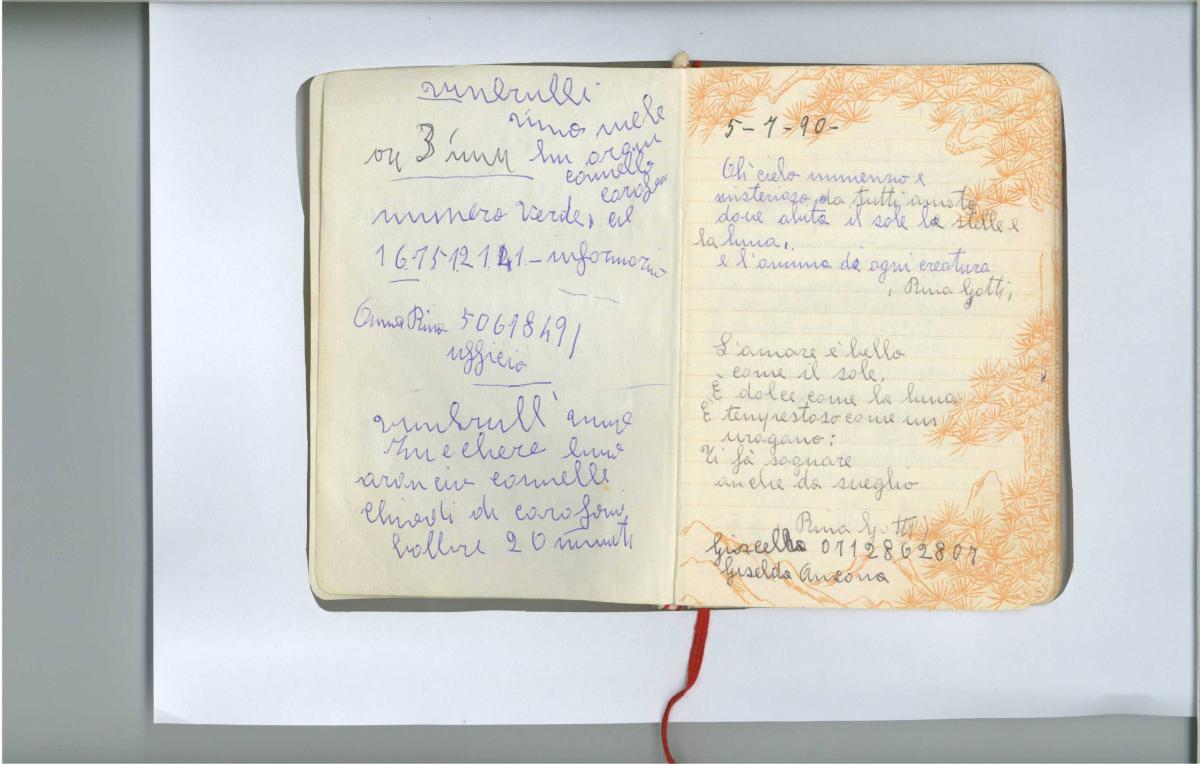 vinbrulli
vino mele
ou 3 innu
cannella
carofan
numero verde,
167512121 - informazio
Anna Rina 50618491
ufficio
vinbrull'
Zucchero
arancio cannella
chiodi di carofani
bollire 20 minuti
5-7-90-
Oh cielo immenso e
misterioso da tutti amato
dove abita il sole la stelle e
la luna,.
e l'anima de ogni creatura
, Rina Gotti,
L'amore è bello
come il sole,
È dolce come la luna
È tempestoso come un
uragano:
Ti fà sognare
anche da sveglio
Rina Gotti
0712862807
Giselda Ancona